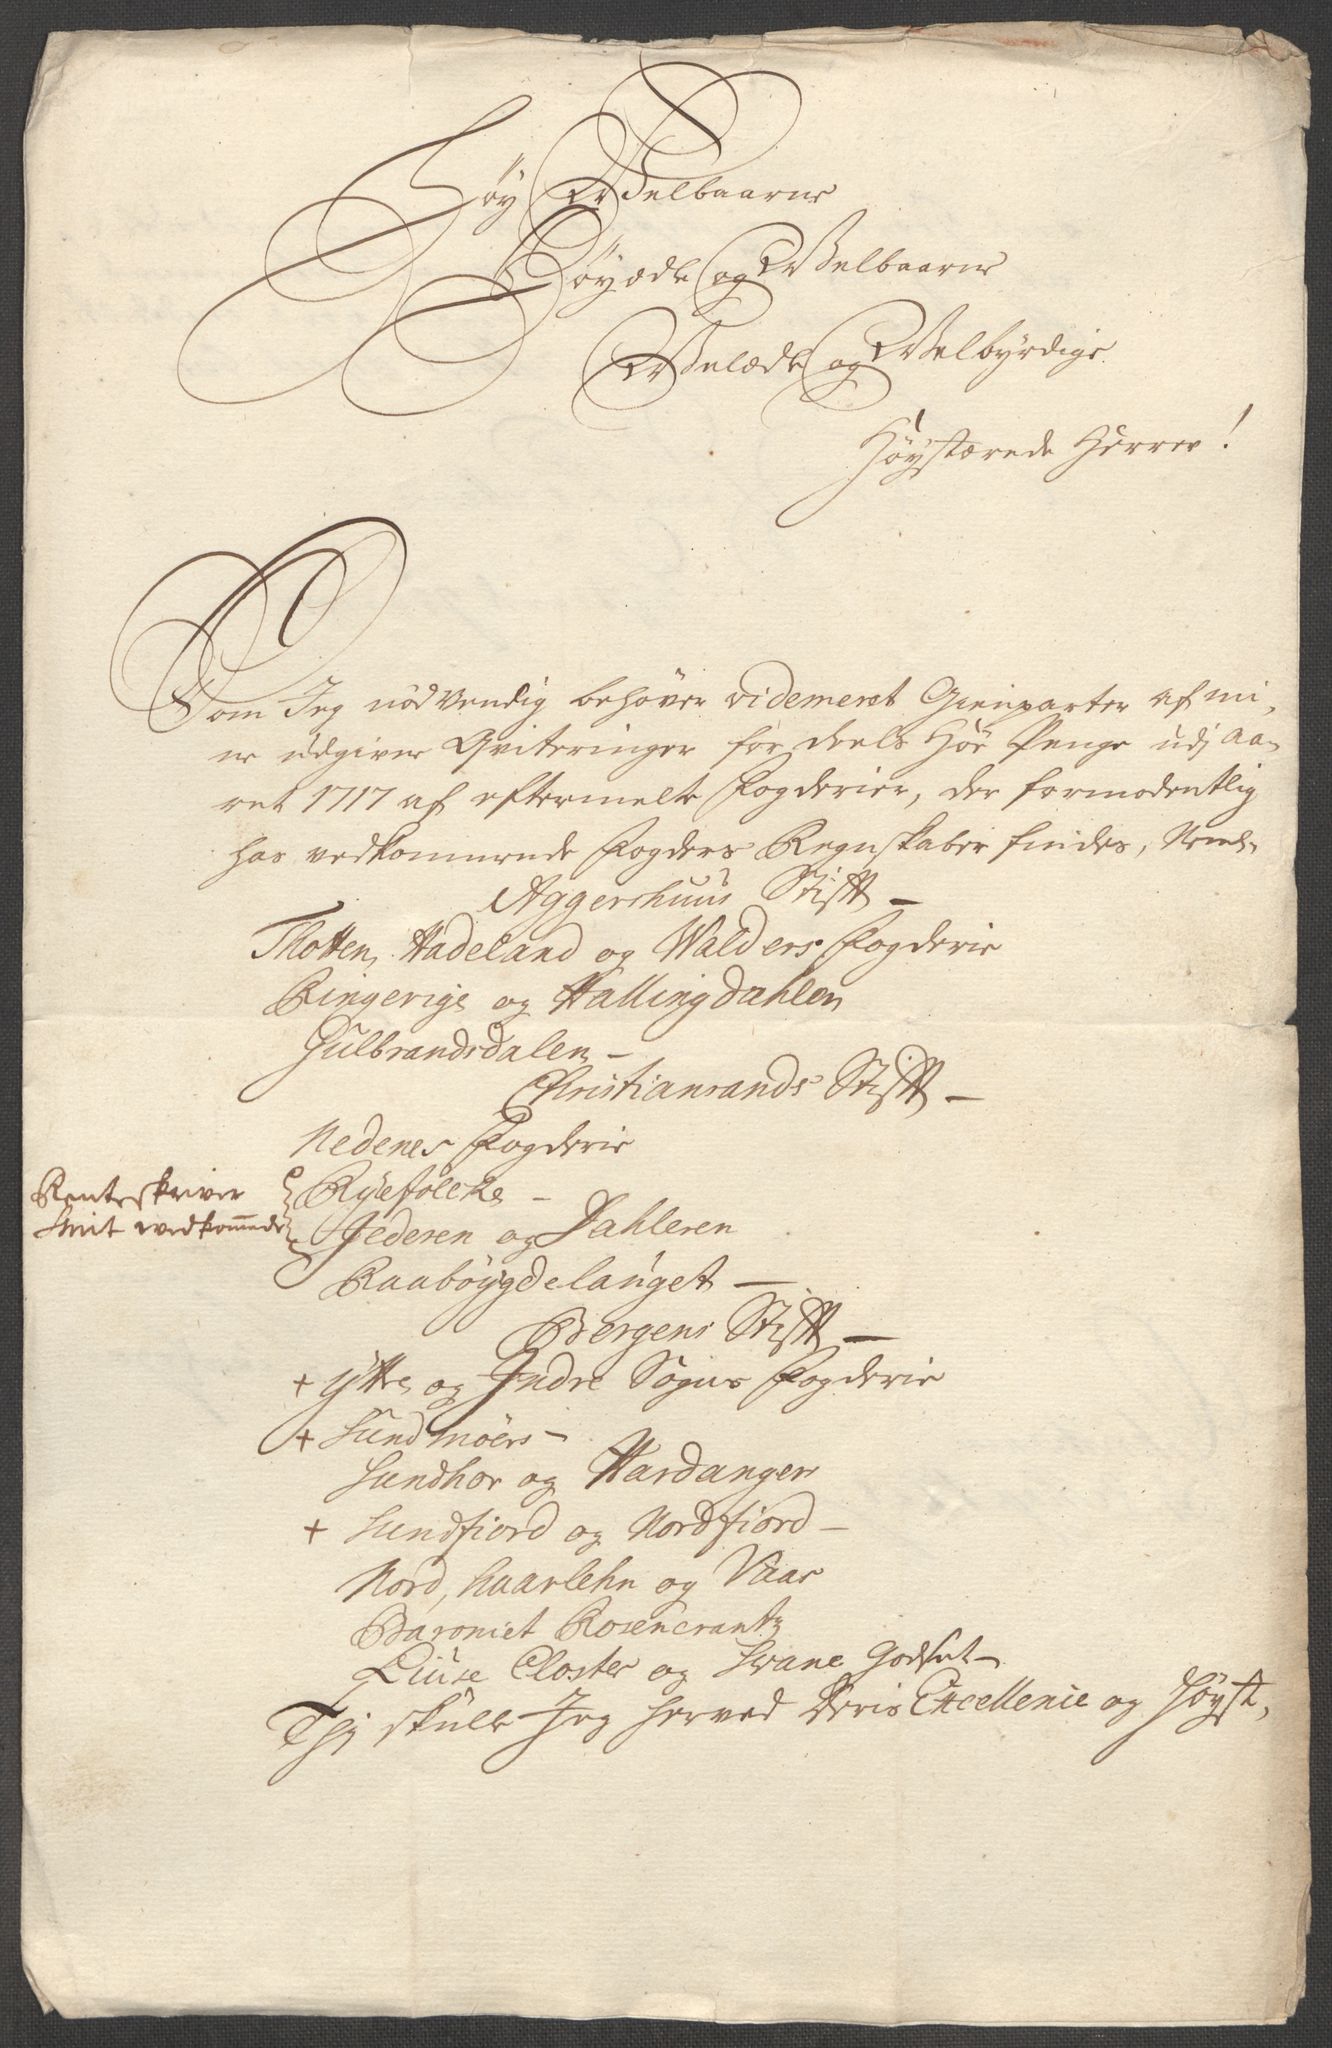 Høy Velbaarne
Høyædle og Velbaarne
Velædle og Velbyrdige
Høystærede Herrer!
Som Jeg nødvendig behøver videmeret Gienparter af mi,
ne udgivne Qviteringer for deels Høe Penge udj Aa,
ret 1717 af eftermelte Fogderier, der formodentlig
hos vedkommende Fogders Regnskaber findes, Neml.
Aggershuus Stift –
Thotten, Hadeland og Walders Fogderie
Ringerige og Hallingdahlen
Gulbrandsdalen –
Christiansands Stift –
Nedenes Fogderie
Ryefølcke –
Renteskriver
Smit vedkommende
Jederen og Dahleren
Raabøygdelauget –
Bergens Stift –
+ Ytte og Indre Sogns Fogderie
+ Sundmøers –
Sundhor og Hardanger
+ Sundfiord og Nordfiord –
Nord, haarlehn og Vaas
Baroniet Rosencrantz
Liuse Closter og Svane Godset –
Thj skulle Jeg herved Deris Excellence og Høyst,